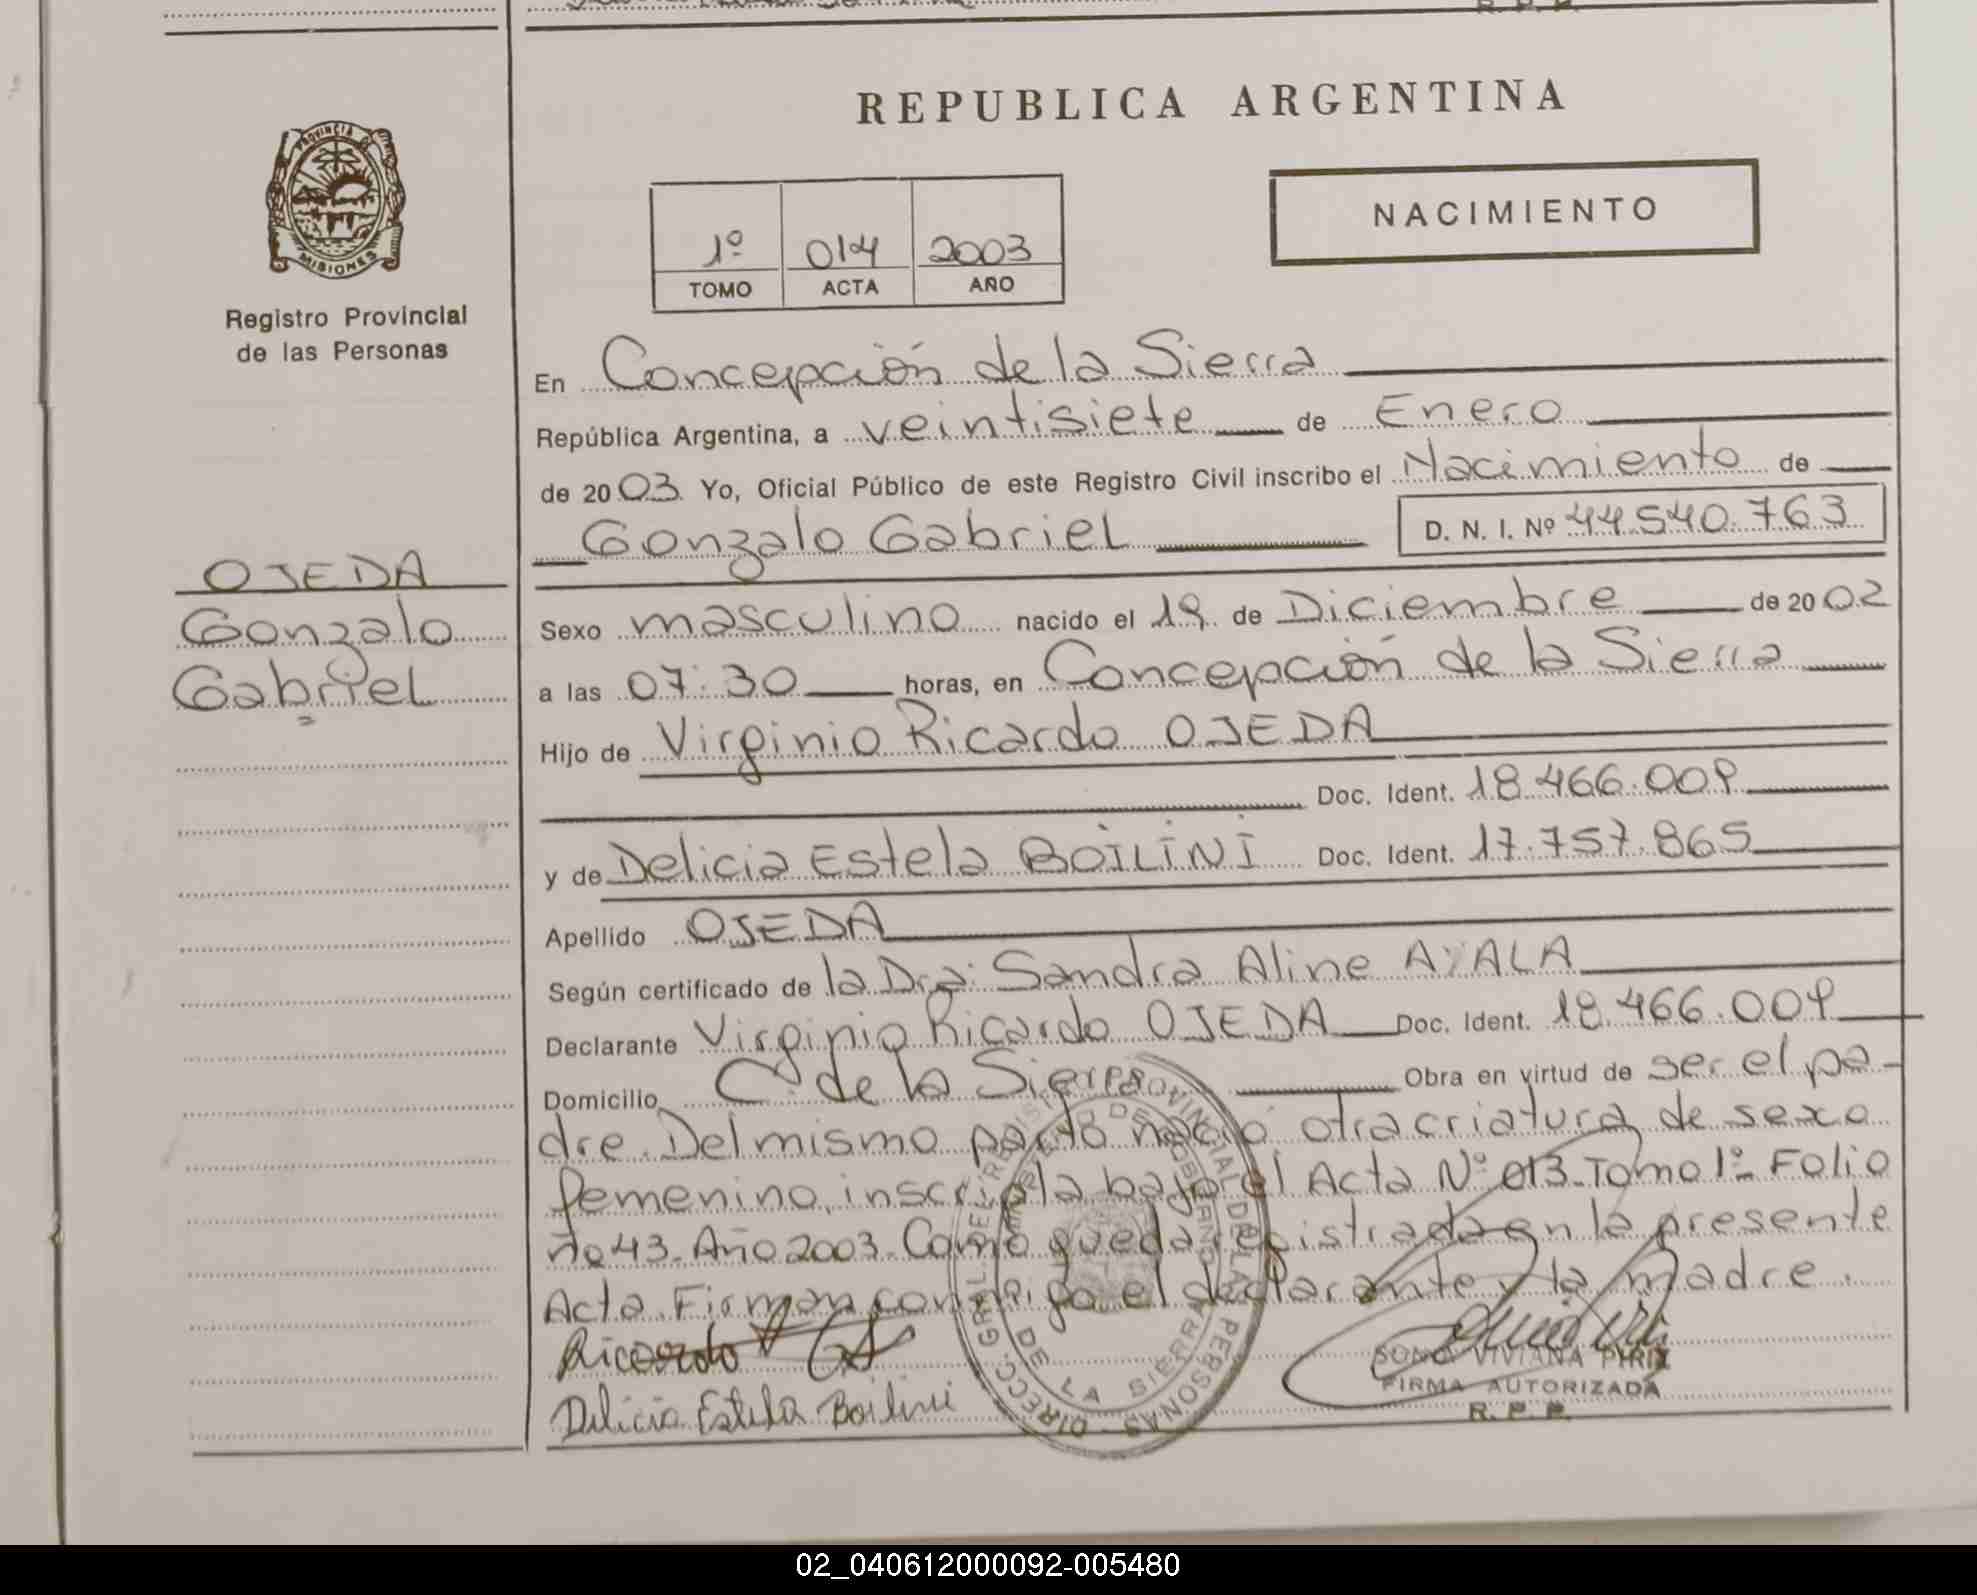 REPUBLICA ARGENTINA
PROVINCIA DE
MISIONES
Registro Provincial
de las Personas
1º 014 2003
TOMO ACTA AÑO
NACIMIENTO
En Concepción de la Sierra
República Argentina, a veintisiete de Enero
de 2003 Yo, Oficial Público de este Registro Civil inscribo el Nacimiento de
Gonzalo Gabriel D. N. I. Nº 44.540.763
OJEDA
Gonzalo
Gabriel
Sexo masculino nacido el 19 de Diciembre de 2002
a las 07:30 horas, en Concepción de la Sierra
Hijo de Virginio Ricardo OJEDA
Doc. Ident. 18.466.009
y de Delicia Estela BOILINI Doc. Ident. 17.757.865
Apellido OJEDA
Según certificado de la Dra. Sandra Aline AYALA
Declarante Virginio Ricardo OJEDA Doc. Ident. 18.466.009
Domicilio C. de la Sierra Obra en virtud de ser el pa-
dre. Del mismo parto nació otra criatura de sexo
femenino, inscripta bajo el Acta Nº 013-Tomo 1º Folio
nº 43-Año 2003. Como queda registrada en la presente
Acta. Firman conmigo el declarante y la madre.
Ricardo
Delicia Estela Boilini
DIRECC. GRAL. DEL REGISTRO PROVINCIAL DE LAS PERSONAS
DE LA SIERRA
VIVIANA PIRIZ
FIRMA AUTORIZADA
R. P. P.
02_040612000092-005480